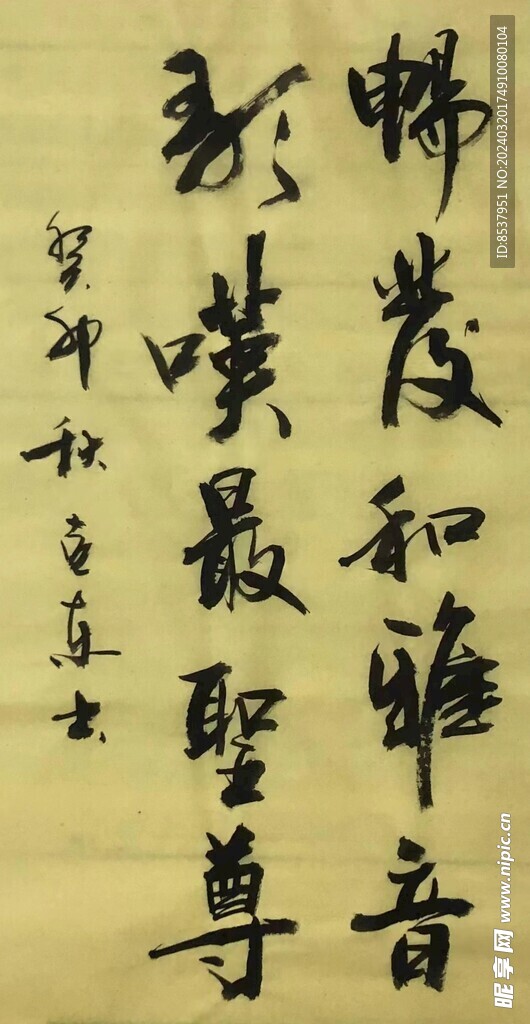 暢發和雅音
歌嘆最聖尊
癸卯秋 東書
ID:8537951 NO:20240320174910080104
昵享网 www.nipic.cn